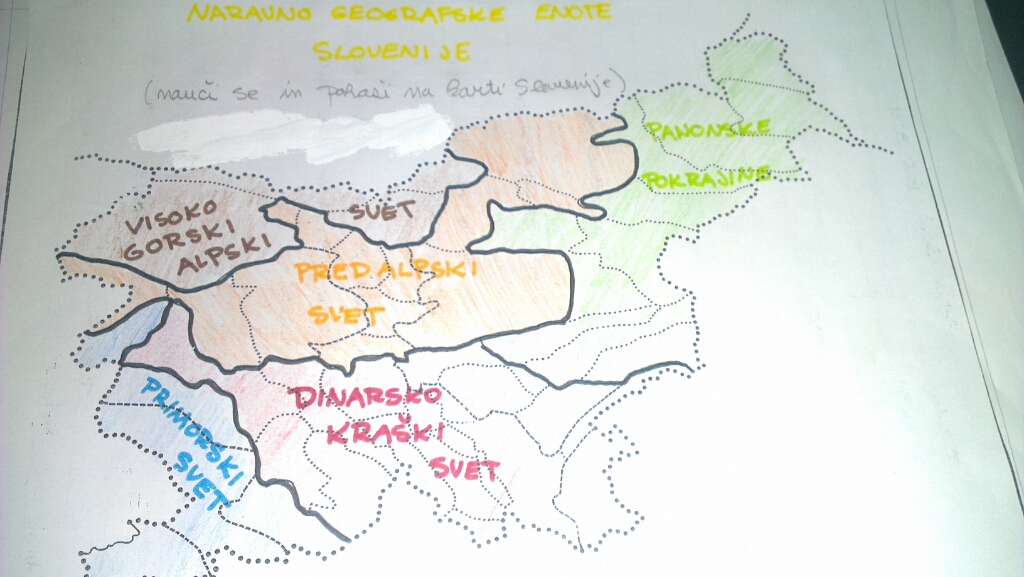 NARAVNO GEOGRAFSKE ENOTE
SLOVENIJE
(nauči se in pokaži na karti Slovenije)
PANONSKE
POKRAJINE
VISOKO
GORSKI
ALPSKI
SVET
PREDALPSKI
SVET
DINARSKO
KRAŠKI
SVET
PRIMORSKI
SVET